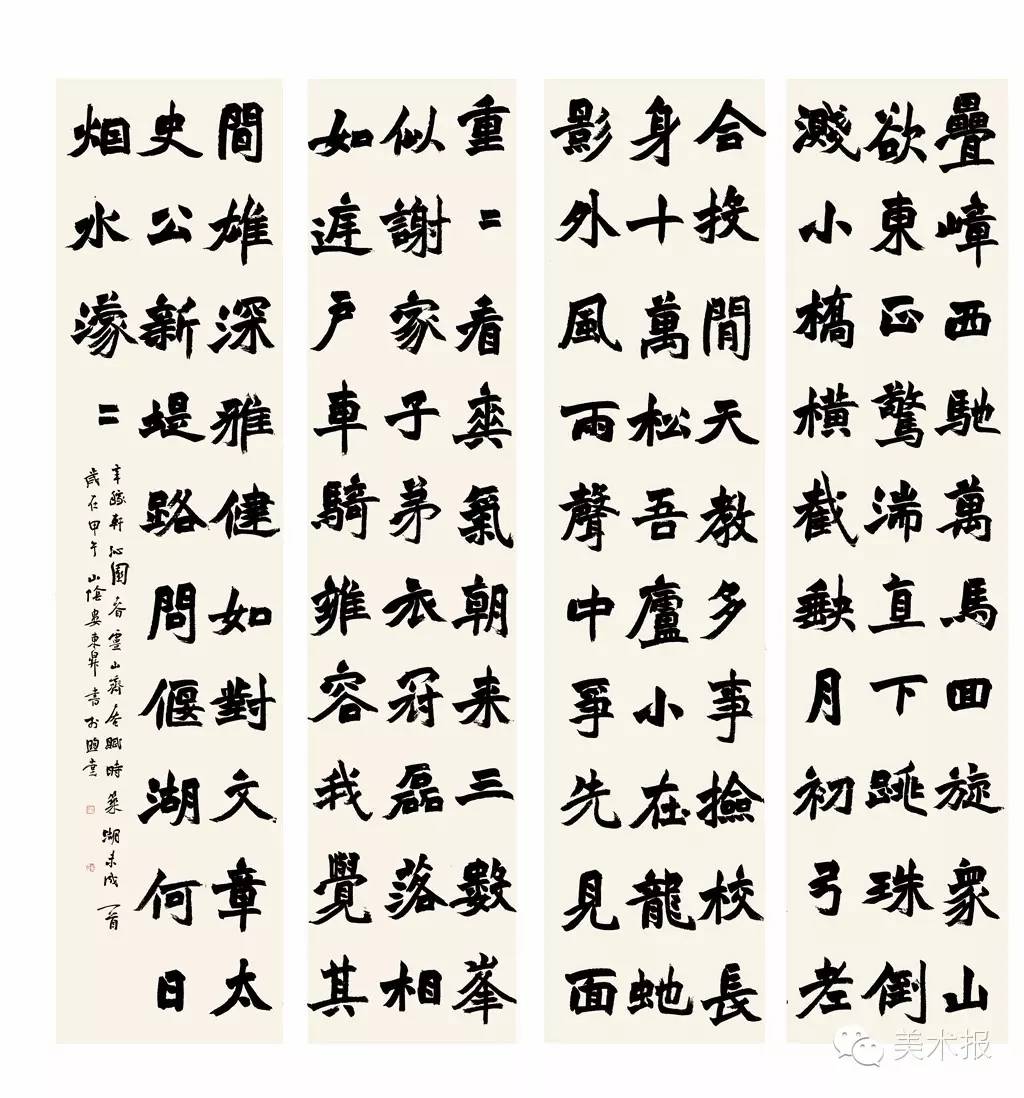 疊嶂西馳萬馬回旋衆山
欲東正驚湍直下跳珠倒
濺小橋橫截缺月初弓老
合投閒天教多事撿校長
身十萬松吾廬小在龍蛇
影外風雨聲中爭先見面
重〻看爽氣朝来三數峯
似謝家子弟衣冠磊落相
如庭戶車騎雍容我覺其
間雄深雅健如對文章太
史公新堤路問偃湖何日
烟水濛〻
辛稼軒沁園春靈山齊庵賦時築湖未成一首
歲在甲午山陰婁東昇書於
美术报